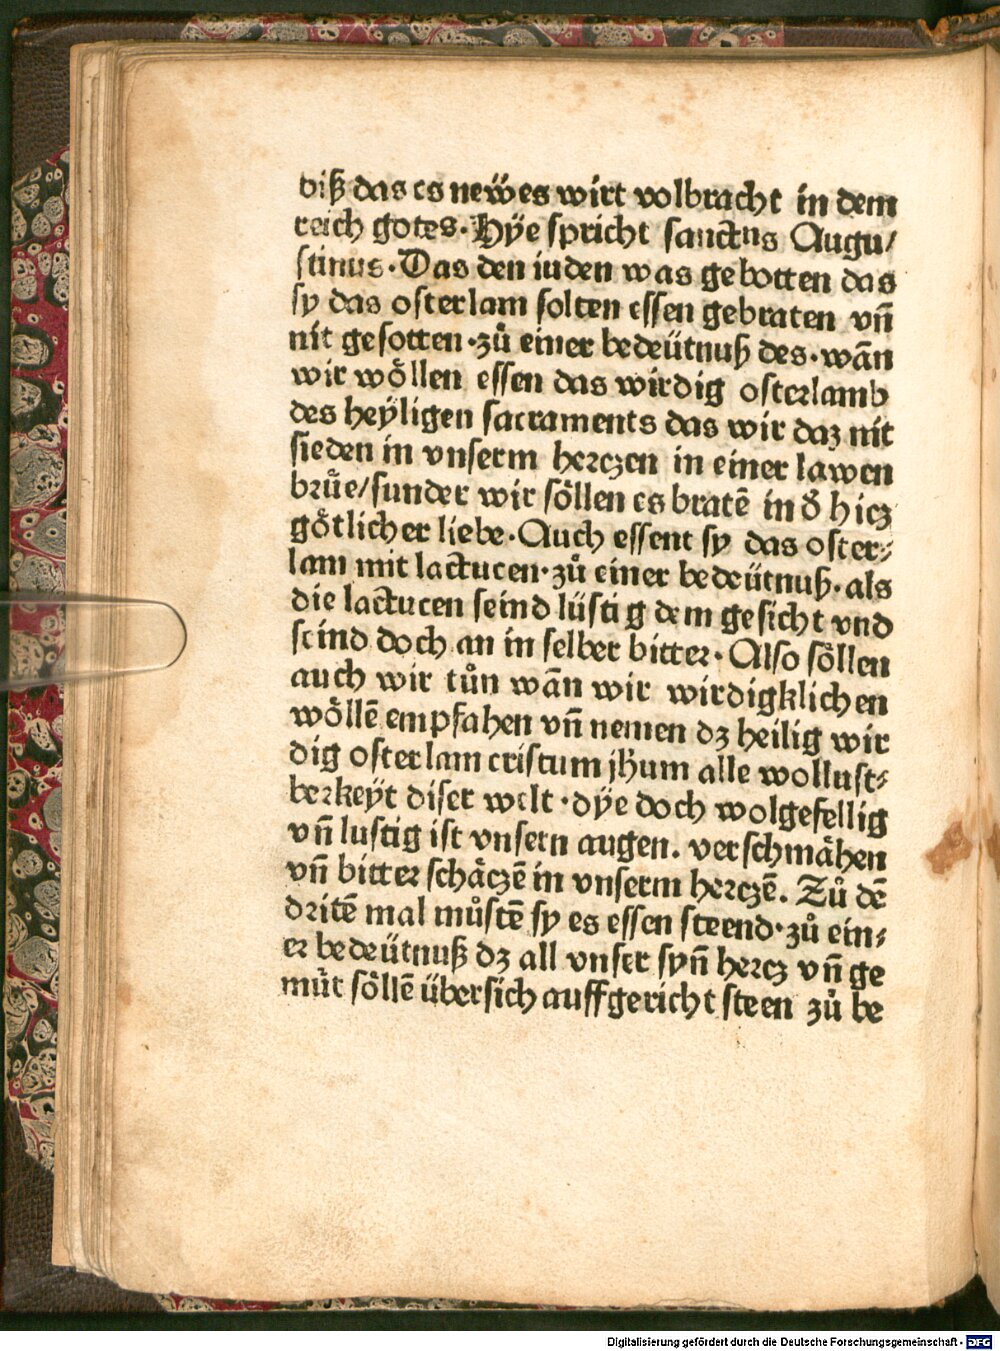 biß das es neẅes wirt volbracht in dem
reich gotes. Hÿe spricht sanctus Augu/
stinus. Das den iuden was gebotten das
sy das osterlam solten essen gebraten vñ
nit gesotten. zů einer bedeütnuß des. wañ
wir wöllen essen das wirdig osterlamb
des heyligen sacraments das wir daz nit
sieden in vnserm herczen in einer lawen
brüe/sunder wir söllen es bratē in đ hicz
götlicher liebe. Auch essent sy das oster⸗
lam mit lactucen. zů einer bedeütnuß. als
die lactucen seind lüstig dem gesicht vnd
seind doch an in selber bitter. Also söllen
auch wir tůn wañ wir wirdigklichen
wöllē empfahen vñ nemen dz heilig wir
dig osterlam cristum jħum alle wollust⸗
berkeÿt diser welt. dÿe doch wolgefellig
vñ lustig ist vnsern augen. verschmähen
vñ bitter schäczē in vnserm herczē. Zů dē
dritē mal můstē sy es essen steend. zů ein⸗
er bedeütnuß dz all vnser syñ hercz vñ ge
můt söllē übersich auffgericht steen zů be
Digitalisierung gefördert durch die Deutsche Forschungsgemeinschaft - DFG